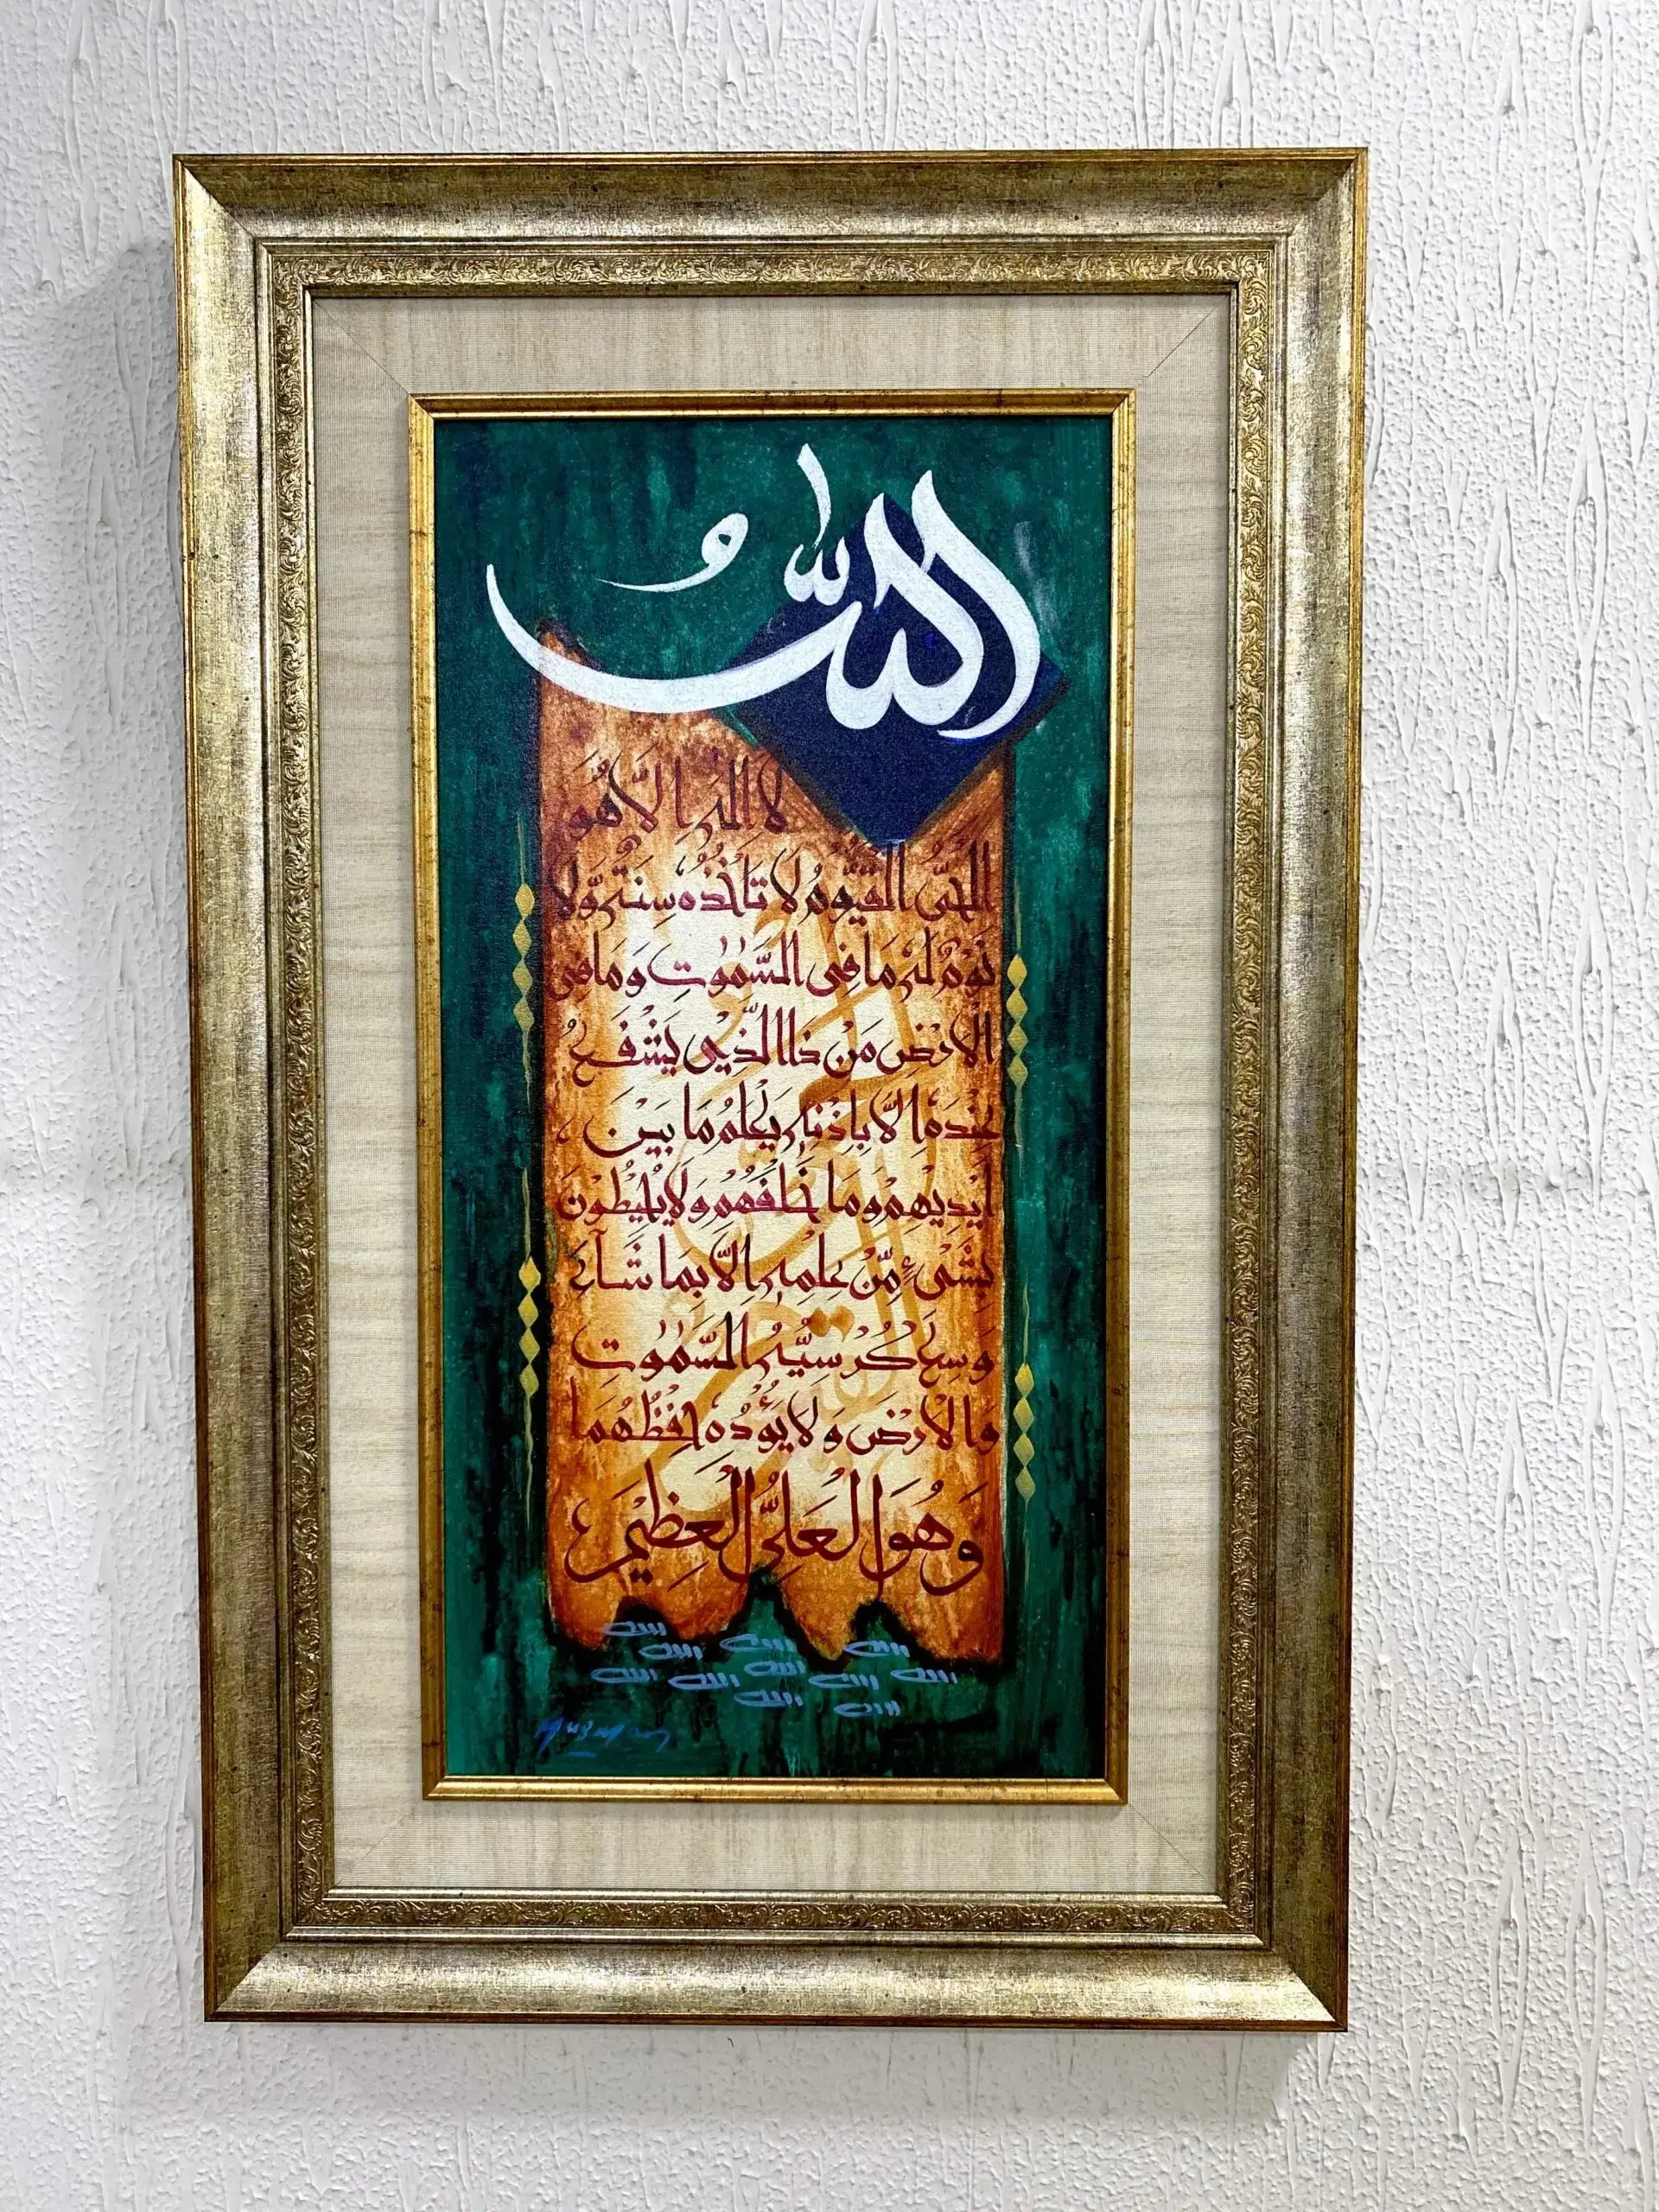 اللهُ
لا اله الا هو
الحىُّ القيُّومُ لا تاخذه سنةٌ ولا
نومٌ له ما فى السمٰوٰت وما فى
الارض من ذا الذى يشفع
عنده الا باذنه يعلم ما بين
ايديهم وما خلفهم ولا يحيطون
بشىءٍ من علمه الا بما شاء
وسع كرسيه السمٰوٰت
والارض ولا يؤده حفظهما
وهو العلى العظيم
الله الله الله
الله الله
الله الله الله الله
الله الله